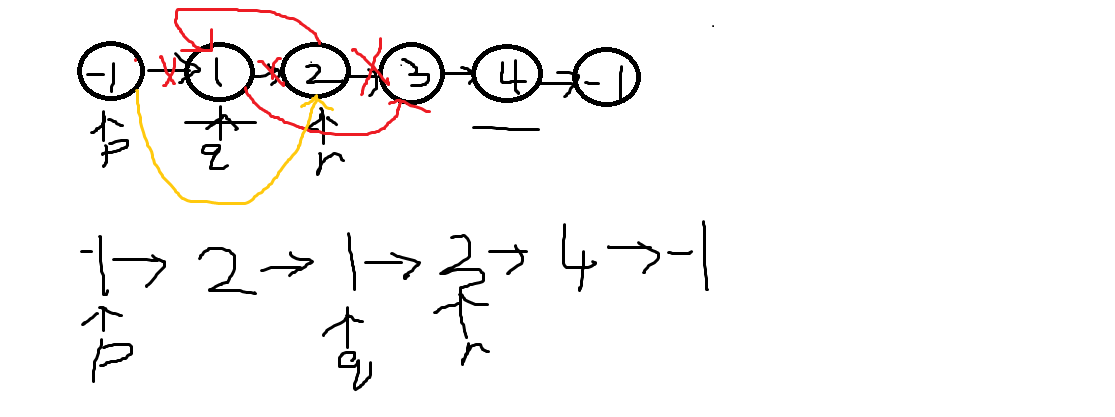 -1 → 1 → 2 → 3 → 4 → -1
p q r
-1 → 2 → 1 → 3 → 4 → -1
p q r